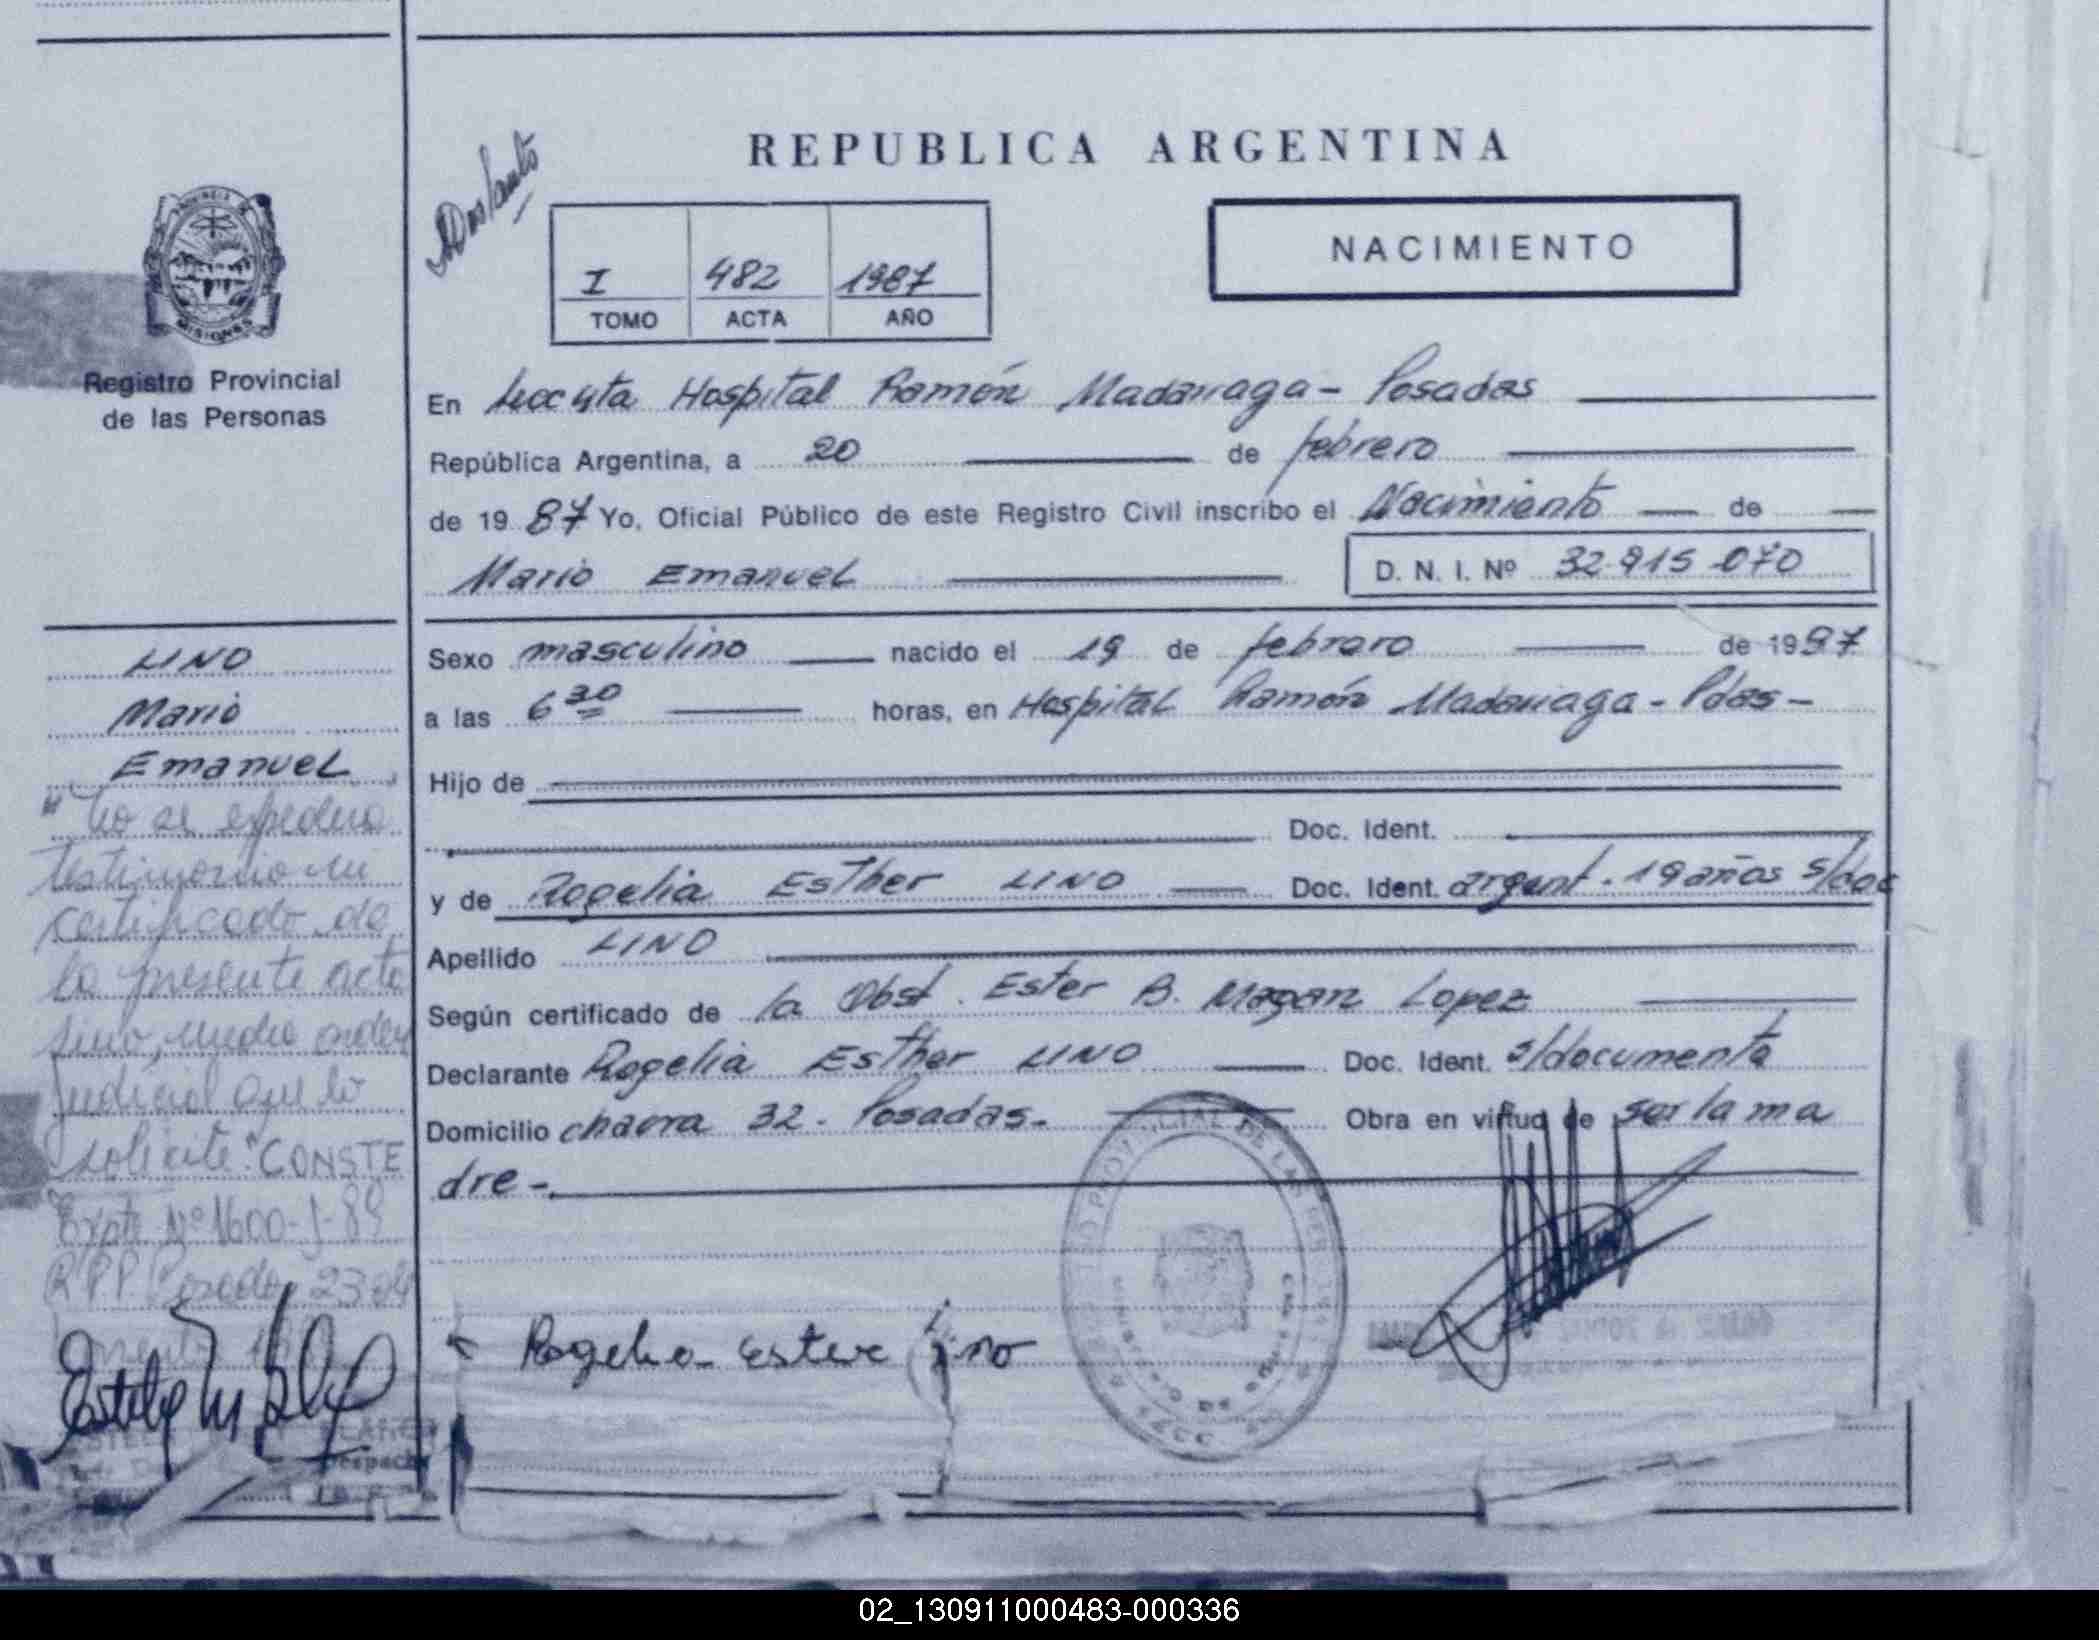 REPUBLICA ARGENTINA
NACIMIENTO
I 482 1987
TOMO ACTA AÑO
Registro Provincial
de las Personas
MISIONES
En Hospital Ramón Madariaga - Posadas
República Argentina, a 20 de febrero
de 1987 Yo, Oficial Público de este Registro Civil inscribo el Nacimiento de
Mario Emanuel D. N. I. Nº 32.915.070
Sexo masculino nacido el 19 de febrero de 1987
a las 6 30 horas, en Hospital Ramón Madariaga - Pdas -
Hijo de
Doc. Ident.
y de Rogelia Esther LINO Doc. Ident. argent. 19 años s/doc
Apellido LINO
Según certificado de la Obst. Ester B. Magan Lopez
Declarante Rogelia Esther LINO Doc. Ident. s/documento
Domicilio chacra 32 - Posadas - Obra en virtud de ser la ma
dre -
LINO
Mario
Emanuel
"No se expedirá
testimonio ni
certificado de
la presente acta
sino, medie orden
judicial que lo
solicite" CONSTE
Expte Nº 1600-J-89
Rogelia Ester Lino
02_130911000483-000336